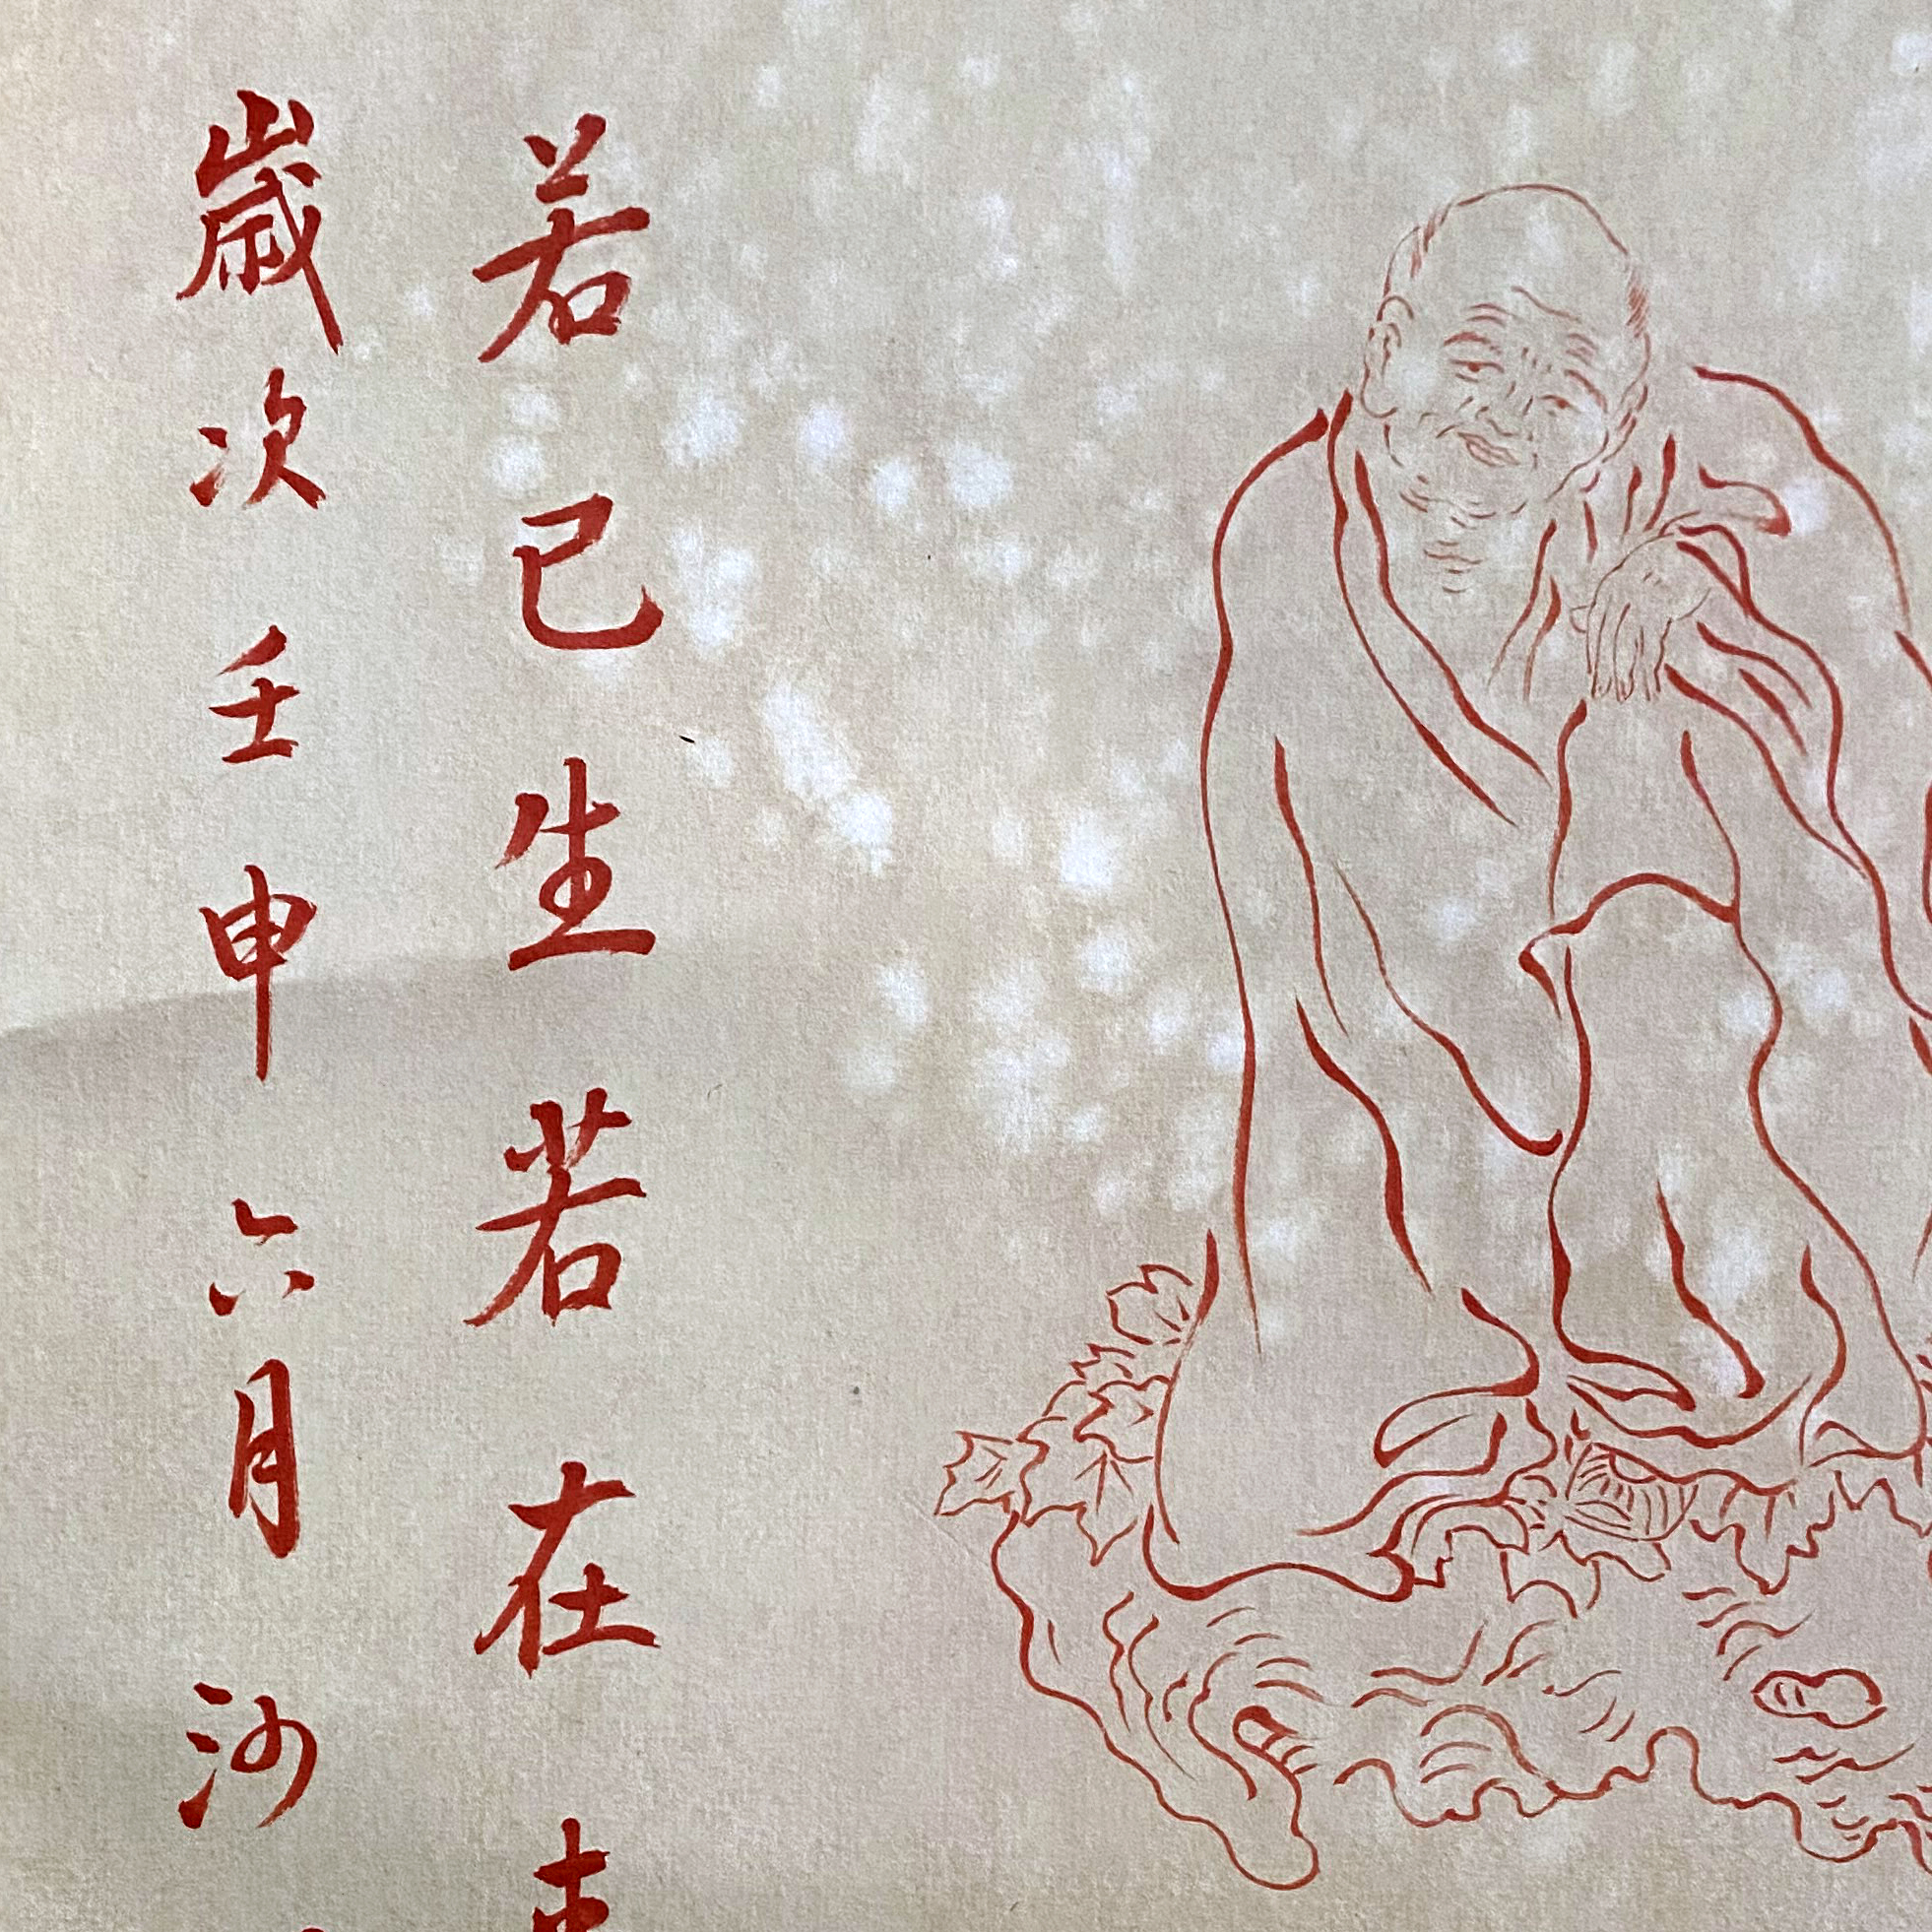 若已生若在
歲次壬申六月沙